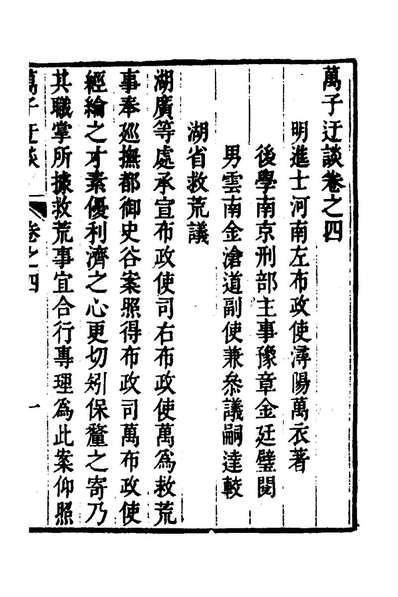 萬子迂談卷之四
明進士河南左布政使潯陽萬衣著
後學南京刑部主事豫章金廷璧閱
男雲南金滄道副使兼叅議嗣達較
湖省救荒議
湖廣等處承宣布政使司右布政使萬爲救荒
事奉巡撫都御史谷案照得布政司萬布政使
經綸之才素優利濟之心更切矧保釐之寄乃
其職掌所據救荒事宜合行專理爲此案仰照
萬子迂談
卷之四
一